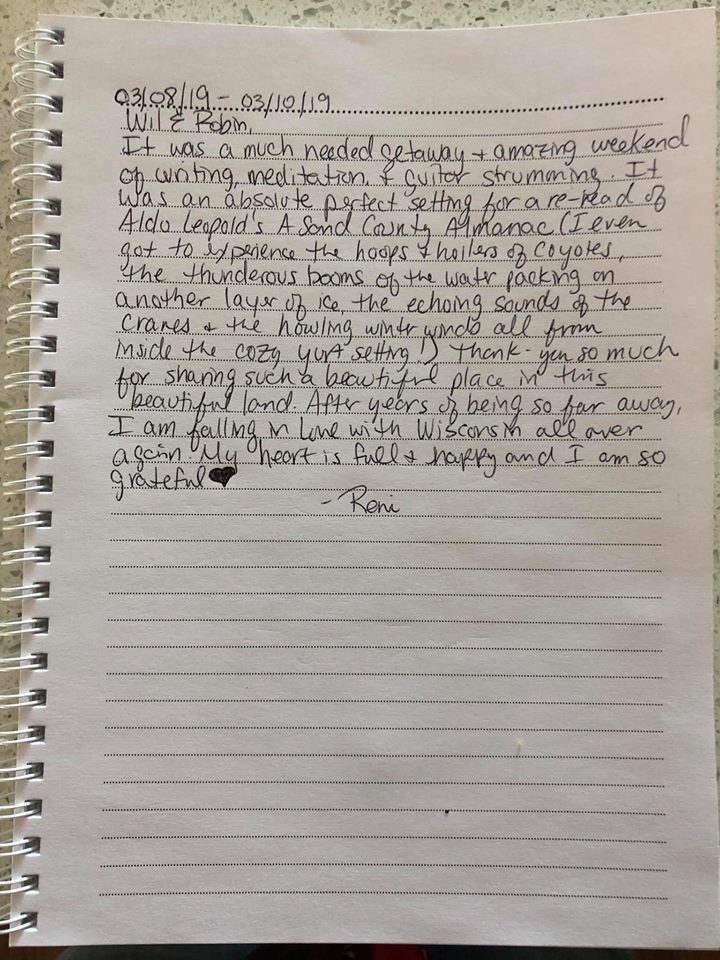 03/08/19 - 03/10/19
Wil & Robin,
It was a much needed getaway + amazing weekend
of writing, meditation, & guitar strumming. It
was an absolute perfect setting for a re-read of
Aldo Leopold's A Sand County Almanac (I even
got to experience the hoops & hollers of coyotes,
the thunderous booms of the water packing on
another layer of ice, the echoing sounds of the
cranes + the howling winter winds all from
inside the cozy yurt setting!) Thank-you so much
for sharing such a beautiful place in this
beautiful land. After years of being so far away,
I am falling in love with Wisconsin all over
again. My heart is full + happy and I am so
grateful ♥
- Reni